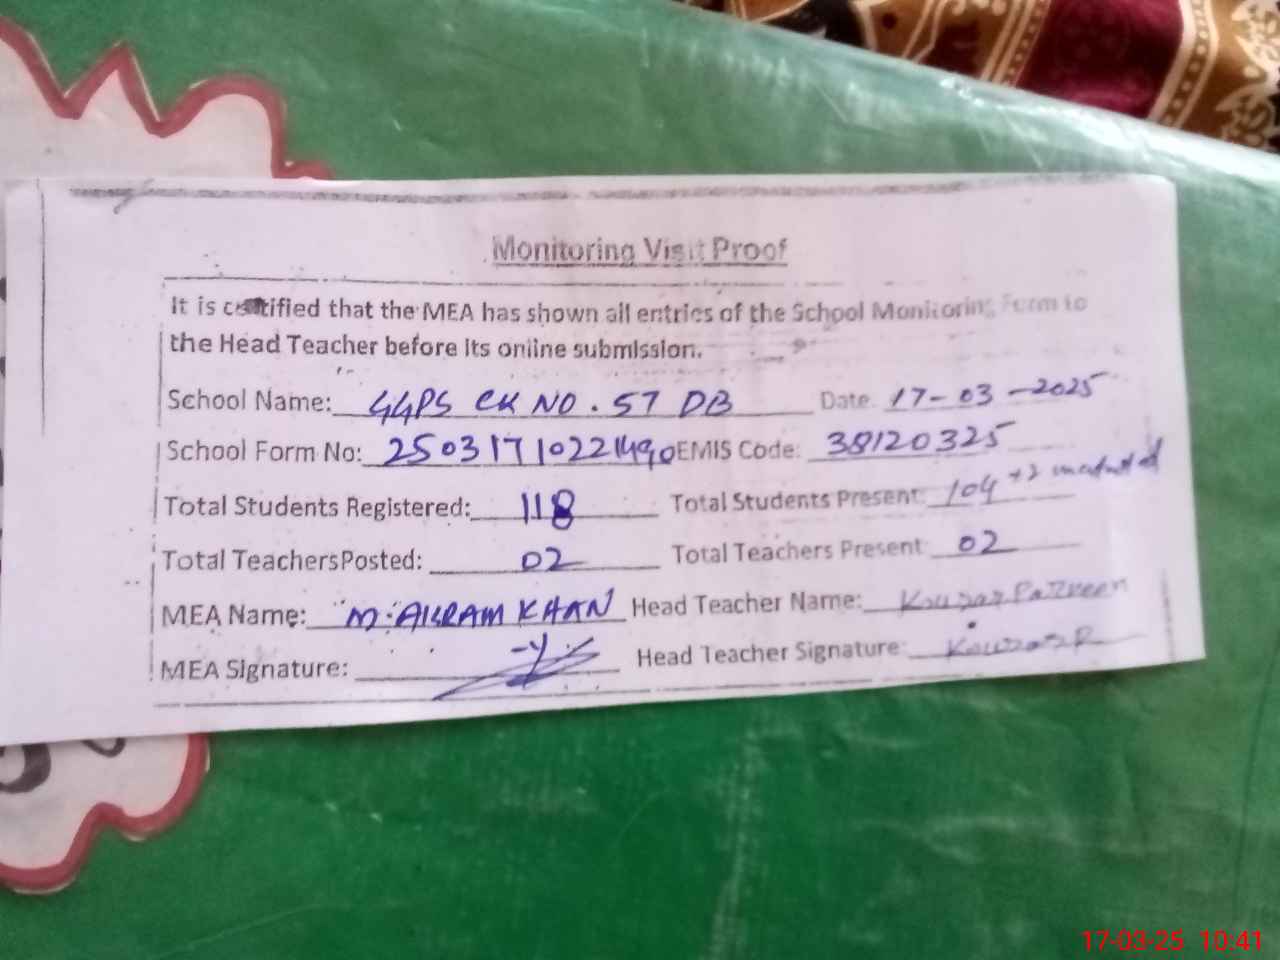 Monitoring Visit Proof
It is certified that the MEA has shown all entries of the School Monitoring Form to
the Head Teacher before its online submission.
School Name: GGPS CK NO. 57 DB Date. 17-03-2025
School Form No: 25031710221490 EMIS Code: 38120325
Total Students Registered: 118 Total Students Present: 104 +3
Total TeachersPosted: 02 Total Teachers Present 02
MEA Name: M. AKRAM KHAN Head Teacher Name: Kousar Parveen
MEA Signature: Head Teacher Signature: Kousar P
17-03-25 10:41